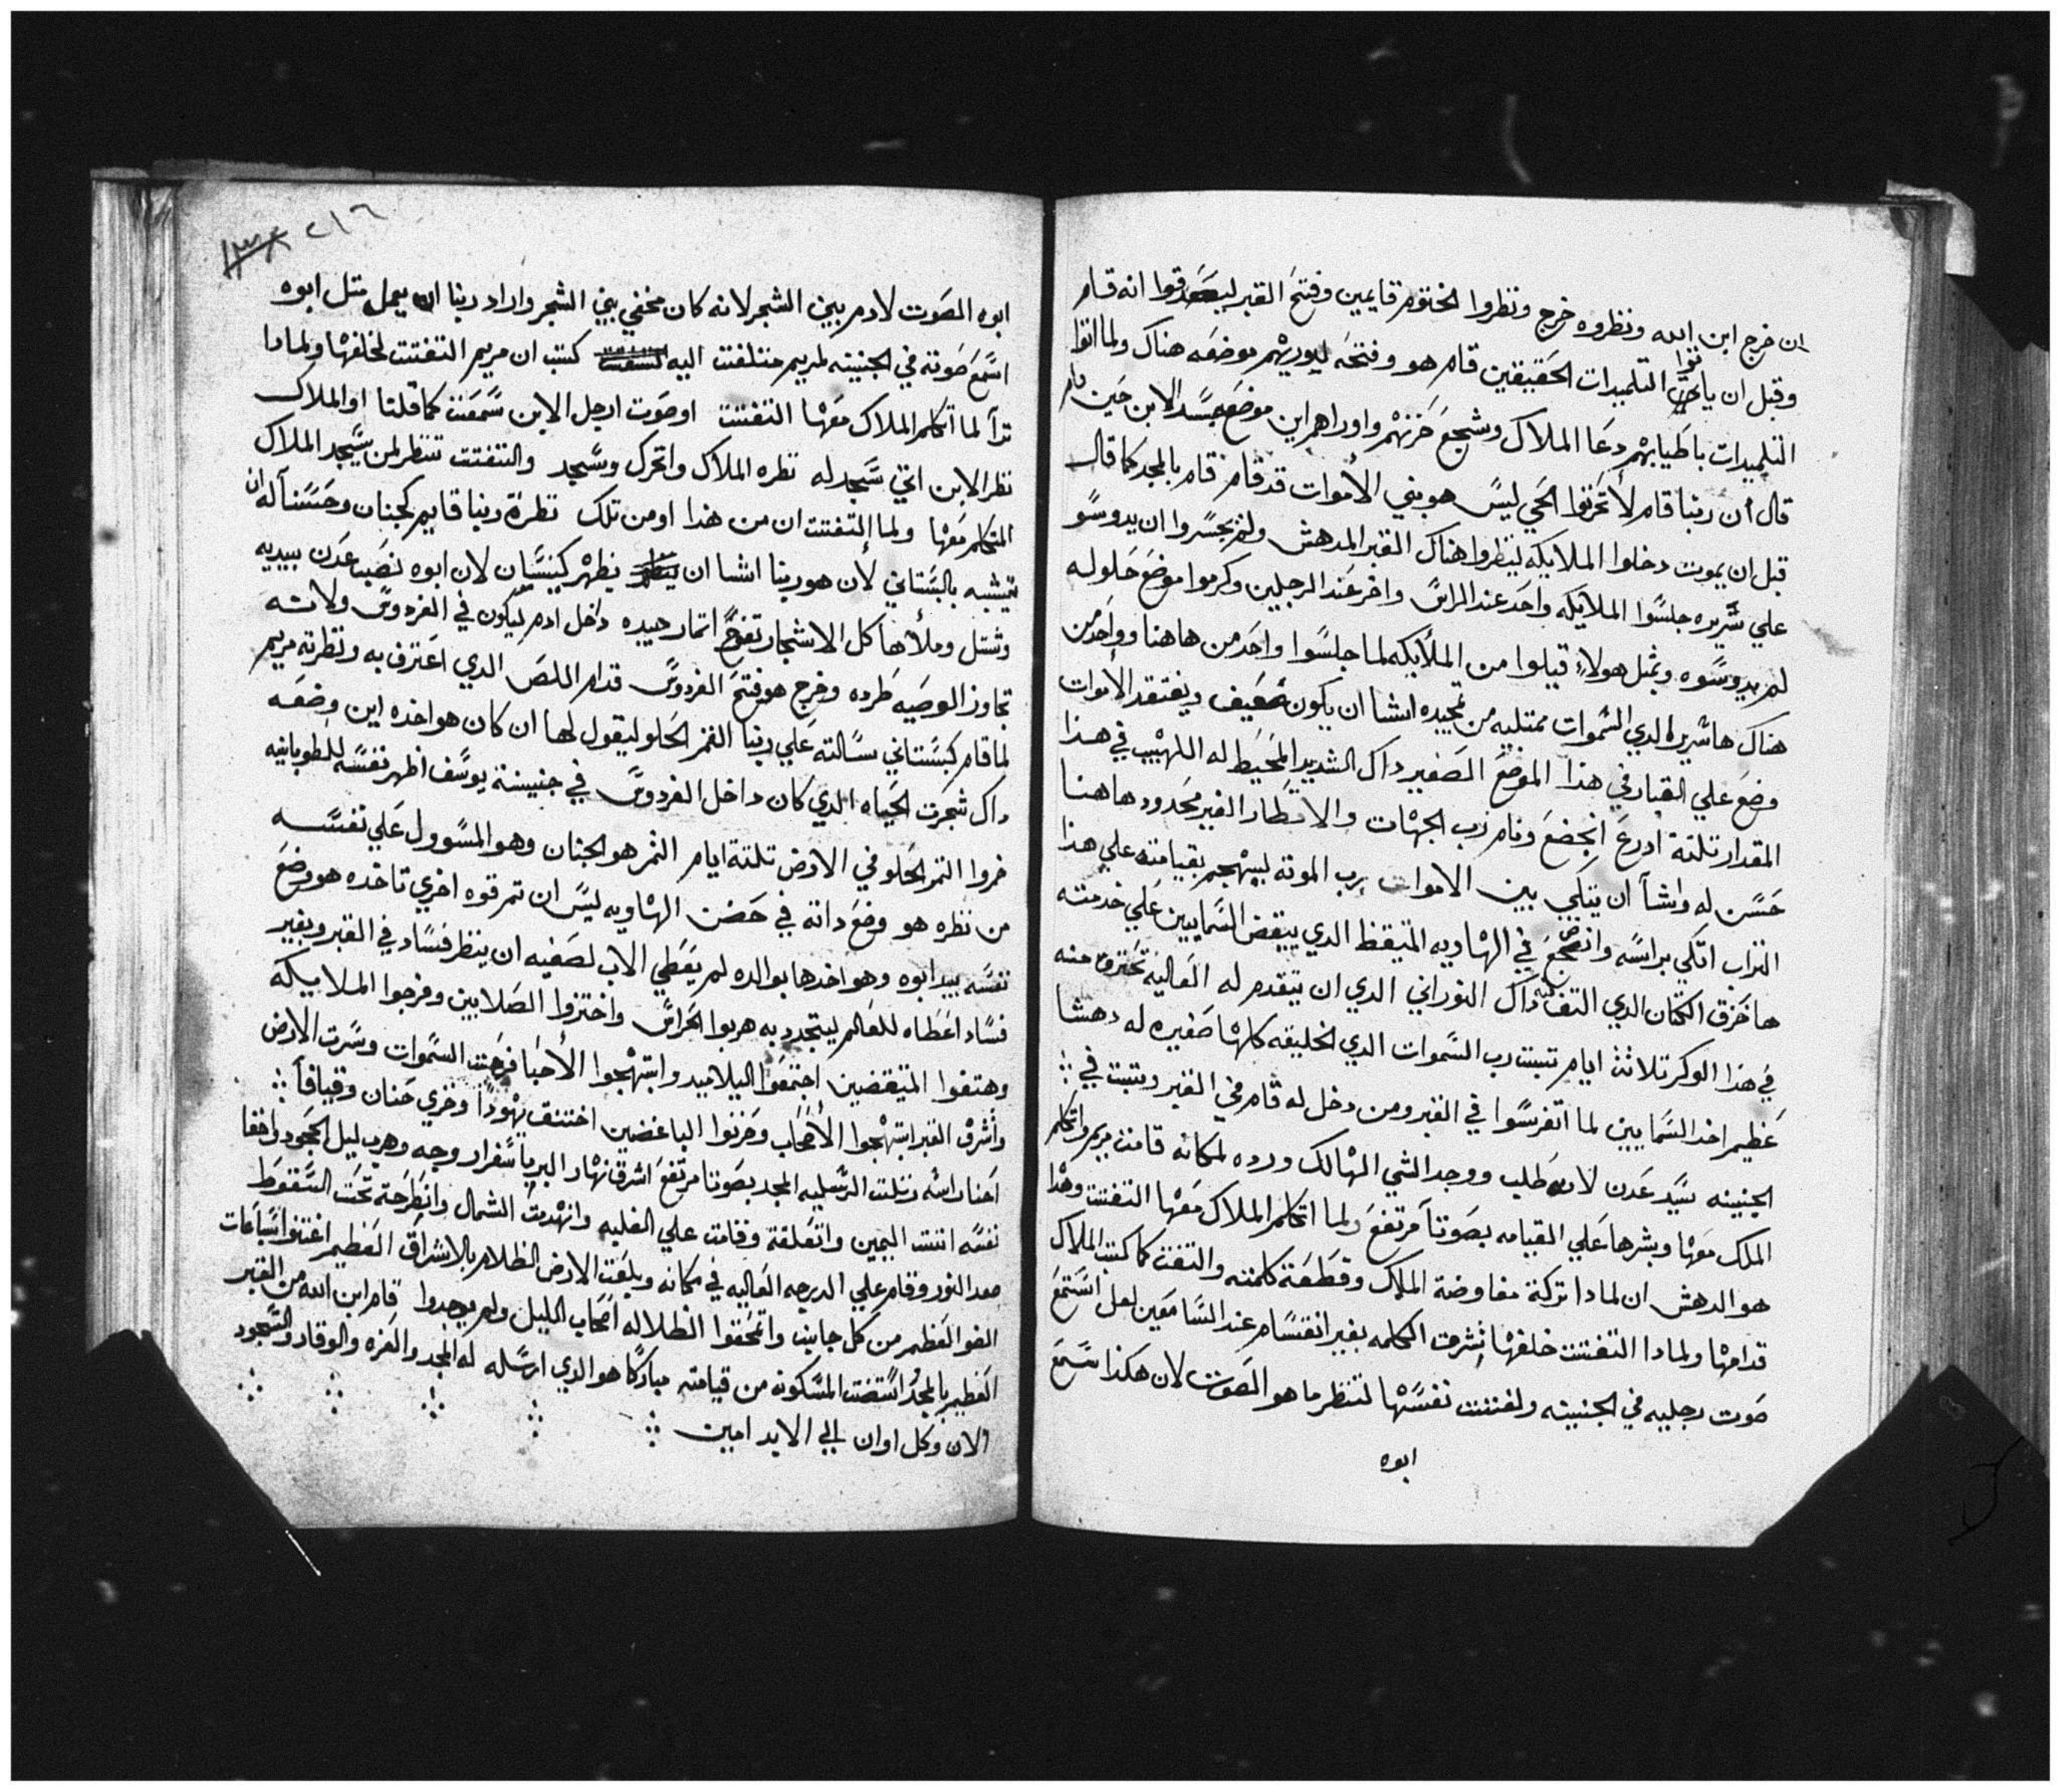 ان خرج ابن الله ونظروه خرج ونظروا الختوم قايمين وفتح القبر ليصدقوا انه قام
وقبل ان ياتوا التلميدات الحقيقين قام هو وفتحه ليوريهم موضعه هناك ولما اتوا
التلميدات باطيابهم دعا الملاك وشجع حزنهم واوراهم اين موضع جسد الابن حين نام
قال ان ربنا قام لا تحزنوا الحي ليس هو بني الاموات قد قام قام بالمجد كما قال
قبل ان يموت دخلوا الملايكه لينظروا هناك القبر المدهش ولم يجسروا ان يدوسو
علي سريره جلسوا الملايكه واحد عند الراس واخر عند الرجلين وكرموا موضع حلوله
لم يدوسوه وبمثل هولاء قيلوا من الملايكه لما جلسوا واحد من هاهنا وواحد من
هناك ها سرير الدي السموات ممتليه من تمجيده اشا ان يكون ضعيف ويفتقد الاموات
وضع علي القبار في هذا الموضع الصغير داك الشديد المحيط له اللهيب في هذا
المقدار تلتة ادرع انجضع ونام رب الجهات والاقطار الغير محدود هاهنا
حسن له وشا ان يتكي بين الاموات رب الموته ليبهجم بقيامته علي هذا
التراب اتكي براسه وانضجع في الهاويه المتيقظ الدي يبقض السمايين علي خدمته
ها خرق الكتان الدي التف به داك النوراني الدي ان تيقدم له العاليه تحترق منه
في هذا الوكر تلاتة ايام تبت رب السموات الدي الخليقه كلها صغيره له دهشا
عظيم اخد السمايين لما اتفرسوا في القبر ومن دخل له قام في القبر وتبت في
الجنينه سيد عدن لانه طلب ووجد الشي الهالك ورده لمكانه قامت مريم واتكلم
الملك معها وبشرها علي القيامه بصوتا مرتفع ولما اتكلم الملاك معها التفتت وهذا
هو الدهش ان لمادا تركة مفاوضة الملاك وقطعة كلمته والتفت كما كتب الملاك
قدامها ولمادا التفتت خلفها نشرت الكلمه بغير انقسام عند السامعين لعل استمع
صوت رجليه في الجنينه ولفتت نفسها لتنظر ما هو الصوت لان هكذا سمع
ابوه
٢١٦
ابوه الصوت لادم بين الشجر لانه كان مخفي بين الشجر واراد ربنا ان يعمل متل ابوه
اسمع صوته في الجنينه لمريم حتتلفت اليه كتب ان مريم التفتت لخلفها ولمادا
ترا لما اتكلم الملاك معها التفتت او صوت ارجل الابن سمعت كما قلنا او الملاك
نظر الابن اتي سجد له نظره الملاك واتحرك وسجد والتفتت تنظر لمن سيجد الملاك
المتكلم معها ولما التفتت ان من هذا او من تلك نظرة ربنا قايم كجنان وحسنا له ان
يتشبه بالبستاني لان هو ربنا اشا ان يظهر كنيسان لان ابوه نصب عدن بيديه
وشتل وملاها كل الاشجار تفوح اتمار جيده داخل ادم ليكون في الفردوس ولانه
تجاوز الوصيه طرده وخرج هو فتح الفردوس قدام اللص الدي اعترف به ونظرته مريم
لما قام كبستاني سالته علي ربنا التمر الحلو ليقول لها ان كان هو اخده اين وضعه
داك شجرت الحياه الدي كان داخل الفردوس في جنينة يوسف اظهر نفسه للطوبانيه
خروا التمر الحلو في الارض تلتة ايام التمر هو الجنان وهو المسوول علي نفسه
من نظره هو وضع داته في حضن الهاويه ليس ان تم قوه اخري تاخده هو وضع
نفسه بيد ابوه وهو اخدها بوالده لم يعطي الاب لصفيه ان ينظر فساد في القبر وبغير
فساد اعطاه للعالم ليتجدد به هربوا الحراس واختزوا الصلابين وفرحوا الملاييكه
وهتفوا المتيقضين اجتمعوا التلاميد وابتهجوا الاحبا فرحت السموات وسرت الارض
واشرق القبر ابتهجوا الاصحاب وحزنوا الباغضين اختنق يهودا وخزي حنان وقيافا
احنا راسه رتلت الرسليه المجد بصوتا مرتفع اشرق نهار البر باسفرار وجه وهرب ليل الجحود واخفا
نفسه اتت اليمين واتعلقة وقامت علي الغلبه وانهدت الشمال وانطرحة تحت السقوط
صعد النور وقام علي الدرجه العاليه في مكانه وبلعت الارض الظلام بالاشراق العظيم اغتنوا ساعات
الضو العظيم من كل جانب واتمحقوا الظلاله اصحاب الليل ولم يوجدوا قام ابن الله من القبر
العظيم بالمجد استضت المسكونه من قيامته مباركا هو الدي ارسله له المجد والعزه والوقار والسجود
الان وكل اوان الي الابد امين